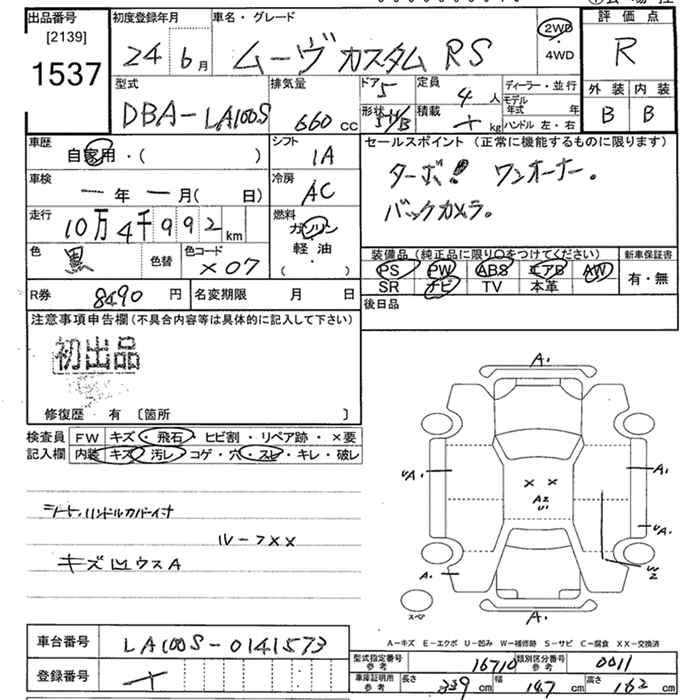 出品番号 初度登録年月 車名・グレード 評価点
[2139]
1537
24 6月 ムーヴ カスタム RS 2WD・4WD R
型式 排気量 ドア 5 定員 4人 ディーラー・並行 外装 内装
DBA-LA100S 660cc 形状 5H/B 積載 kg モデル年式 年 B B
ハンドル 左・右
車歴 自家用・( ) シフト IA セールスポイント (正常に機能するものに限ります)
車検 ー年ー月( 日) 冷房 AC ターボ! ワンオーナー。
走行 10万4千992km 燃料 ガソリン・軽油・( ) バックカメラ。
色 黒 色替 色コード X07
装備品 (純正品に限り○をつけてください) 新車保証書
PS PW ABS エアB AW 有・無
SR ナビ TV 本革
R券 8490円 名変期限 月 日 後日品
注意事項申告欄(不具合内容等は具体的に記入して下さい)
初出品
修復歴 有 〔箇所 〕
検査員 FW キズ・飛石・ヒビ割・リペア跡・×要
記入欄 内装 キズ・汚レ・コゲ・穴・スレ・キレ・破レ
シート、ハンドルカバーイナ
ルーフXX
キズ凹ウスA
A.
UA. A.
A2
U1
UA.
A. W2
スペア A.
A-キズ E-エクボ U-凹み W-補修跡 S-サビ C-腐食 XX-交換済
車台番号 LA100S-0141573
型式指定番号 参考 16710 類別区分番号 参考 0011
登録番号
車庫証明用 参考 長さ 339cm 幅 147cm 高さ 162cm